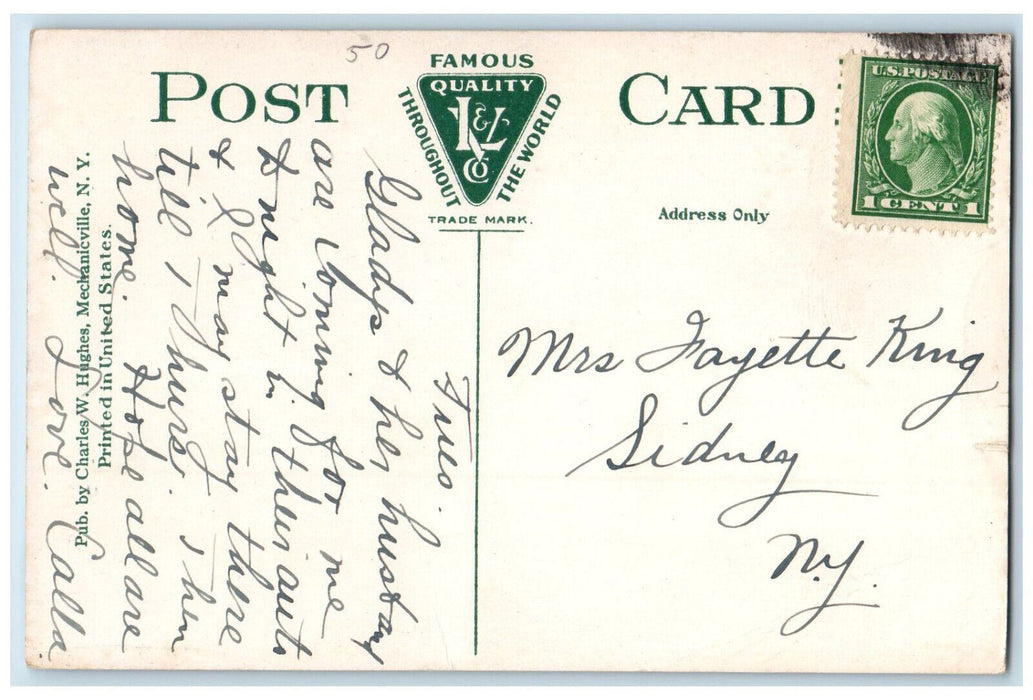 50
POST CARD
FAMOUS
QUALITY
THROUGHOUT
THE WORLD
L & Co
TRADE MARK.
U.S. POSTAGE
1 CENT 1
Address Only
Mrs Fayette King
Sidney
N.Y.
Tues.
Gladys & her husband
are coming for me
to night in their auto
& I may stay there
till Thurs. Then
home. Hope all are
well. Love. Calla
Pub. by Charles W. Hughes, Mechanicville, N. Y.
Printed in United States.